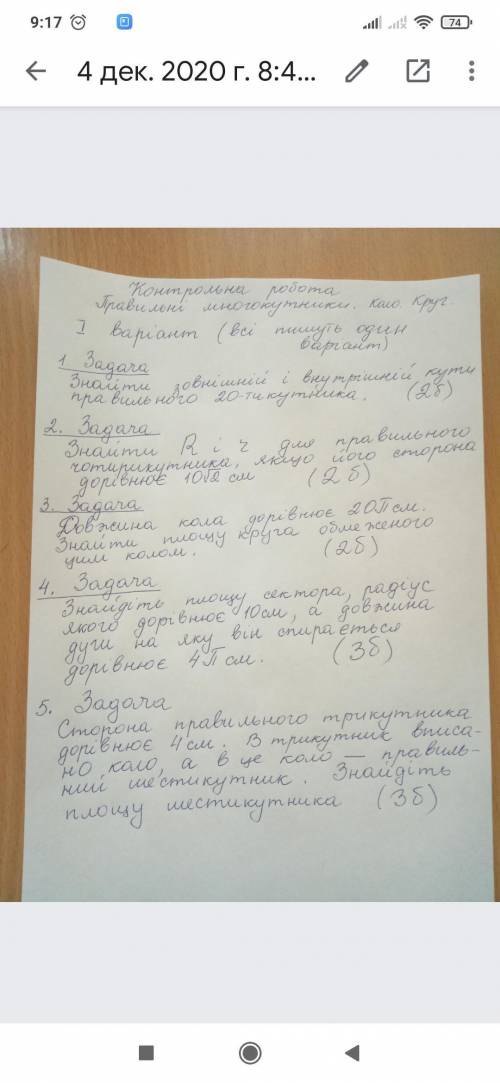 9:17
74
4 дек. 2020 г. 8:4...
Контрольна робота
Правильні многокутники. Коло. Круг.
I варіант (всі пишуть один
варіант)
1 Задача
Знайти зовнішній і внутрішній кути
правильного 20-тикутника. (2б)
2. Задача
Знайти R і r для правильного
чотирикутника, якщо його сторона
дорівнює 10√2 см (2 б)
3. Задача
Довжина кола дорівнює 20π см.
Знайти площу круга обмеженого
цим колом. (2б)
4. Задача
Знайдіть площу сектора, радіус
якого дорівнює 10см, а довжина
дуги на яку він спирається
дорівнює 4π см. (3б)
5. Задача
Сторона правильного трикутника
дорівнює 4 см. В трикутник вписа-
но коло, а в це коло — правиль-
ний шестикутник. Знайдіть
площу шестикутника (3б)